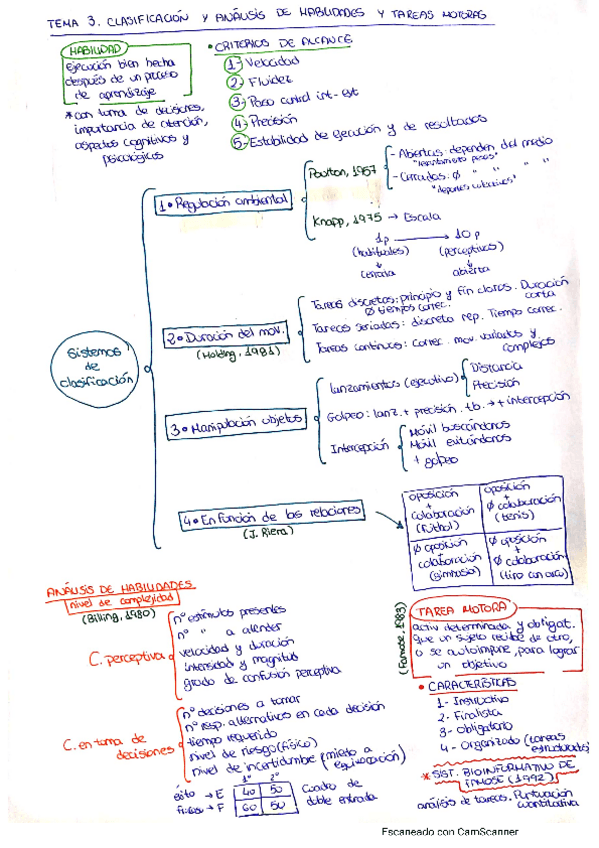 TEMA 3. CLASIFICACIÓN Y ANÁLISIS DE HABILIDADES Y TAREAS MOTORAS
HABILIDAD
ejecución bien hecha
después de un proceso
de aprendizaje
* con toma de decisiones,
importancia de atención,
aspectos cognitivos y
psicológicos
• CRITERIOS DE ALCANCE
1- Velocidad
2- Fluidez
3- Paso control int- ext
4- Precisión
5- Estabilidad de ejecución y de resultados
Sistemas
de
clasificación
1• Regulación ambiental
Poulton, 1957
- Abiertas: dependen del medio
"levantamiento pesos"
- Cerradas: Ø " " "
"deportes colectivos"
Knapp, 1975 → Escala
1p → 10p
(habituales) (perceptivas)
cerrada abierta
2• Duración del mov.
(Holding, 1981)
Tareas discretas: principio y fin claros. Duración
Ø tiempos correc. corta
Tareas seriadas: discreta rep. Tiempo correc.
Tareas continuas: correc. mov. variados y
complejos
3• Manipulación objetos
Lanzamientos (ejecutivo)
Distancia
Precisión
Golpeo: lanz. + precisión. tb. → + intercepción
Intercepción
Móvil buscándonos
Móvil evitándonos
+ golpeo
4• En función de las relaciones
(J. Riera)
oposición
+
colaboración
(fútbol)
oposición
+
Ø colaboración
(tenis)
Ø oposición
+
colaboración
(gimnasia)
Ø oposición
+
Ø colaboración
(tiro con arco)
ANÁLISIS DE HABILIDADES
nivel de complejidad
(Billing, 1980)
C. perceptiva
nº estímulos presentes
nº " a atender
velocidad y duración
intensidad y magnitud
grado de confusión perceptiva
C. en toma de
decisiones
nº decisiones a tomar
nº resp. alternativas en cada decisión
tiempo requerido
nivel de riesgo (físico)
nivel de incertidumbre (miedo a
equivocación)
1º 2º
éxito → E 40 50
fracaso → F 60 50
Cuadro de
doble entrada
(Famose, 1983)
TAREA MOTORA
activ determinada y obligat.
que un sujeto recibe de otro,
o se autoimpone, para lograr
un objetivo
• CARACTERÍSTICAS
1- Instructivo
2- Finalista
3- Obligatorio
4- Organizado (tareas
estructuradas)
* SIST. BIOINFORMATIVO DE
FAMOSE (1992)
análisis de tareas. Puntuación
cuantitativa
Escaneado con CamScanner